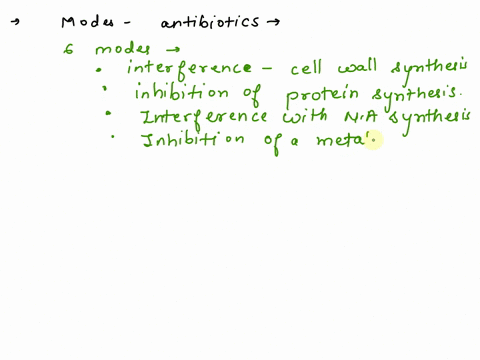 → Modes - antibiotics →
6 modes →
• interference - cell wall synthesis
• inhibition of protein synthesis.
• Interference with N.A synthesis
• Inhibition of a meta